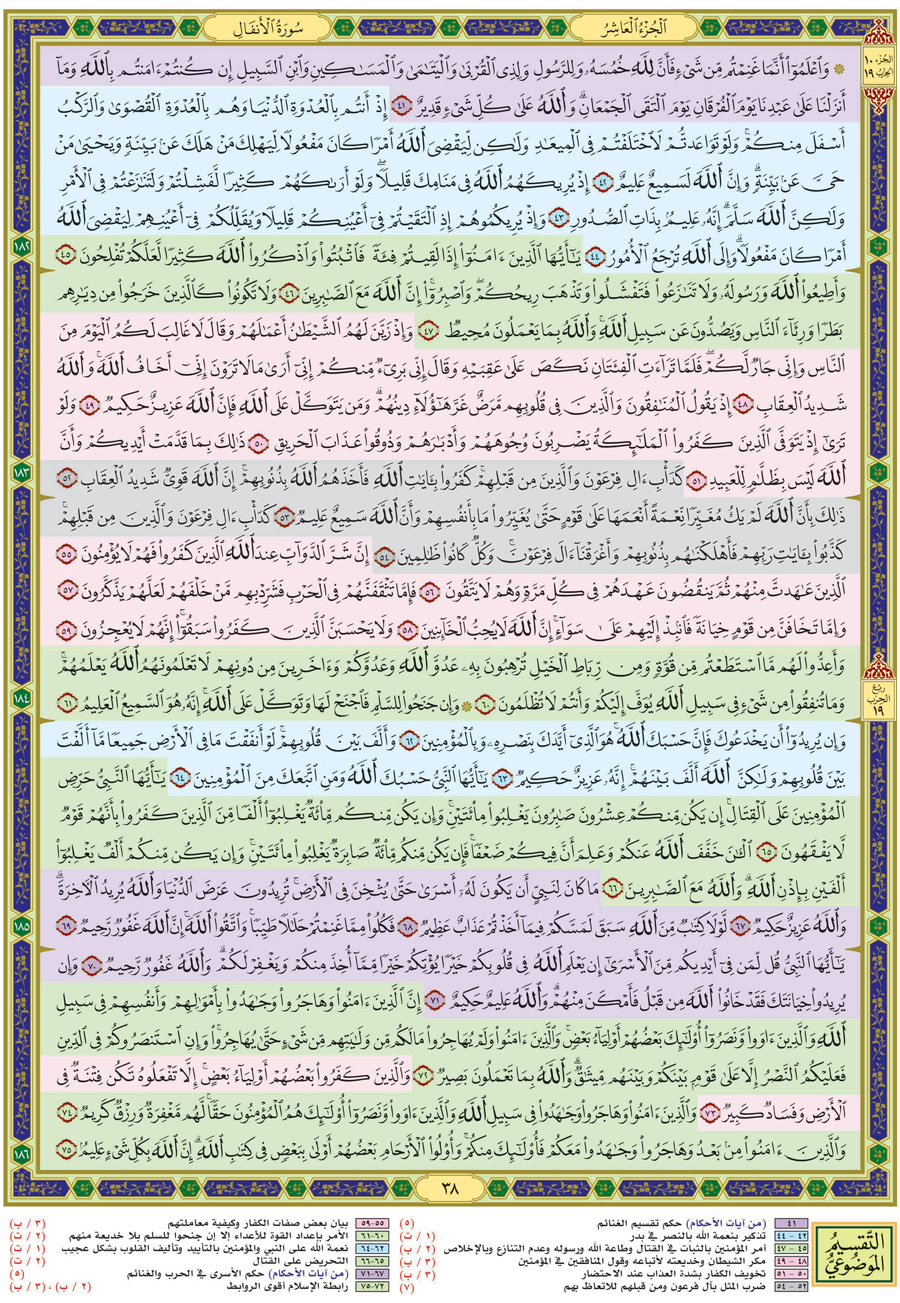 الجُزْءُ العَاشِرُ
سُورَةُ الأَنفَالِ
الجُزء ١٠ الحِزب ١٩
۞ وَٱعْلَمُوٓا۟ أَنَّمَا غَنِمْتُم مِّن شَىْءٍ فَأَنَّ لِلَّهِ خُمُسَهُۥ وَلِلرَّسُولِ وَلِذِى ٱلْقُرْبَىٰ وَٱلْيَتَـٰمَىٰ وَٱلْمَسَـٰكِينِ وَٱبْنِ ٱلسَّبِيلِ إِن كُنتُمْ ءَامَنتُم بِٱللَّهِ وَمَآ
أَنزَلْنَا عَلَىٰ عَبْدِنَا يَوْمَ ٱلْفُرْقَانِ يَوْمَ ٱلْتَقَى ٱلْجَمْعَانِ ۗ وَٱللَّهُ عَلَىٰ كُلِّ شَىْءٍ قَدِيرٌ ٤١ إِذْ أَنتُم بِٱلْعُدْوَةِ ٱلدُّنْيَا وَهُم بِٱلْعُدْوَةِ ٱلْقُصْوَىٰ وَٱلرَّكْبُ
أَسْفَلَ مِنكُمْ ۚ وَلَوْ تَوَاعَدتُّمْ لَٱخْتَلَفْتُمْ فِى ٱلْمِيعَـٰدِ ۙ وَلَـٰكِن لِّيَقْضِىَ ٱللَّهُ أَمْرًا كَانَ مَفْعُولًا لِّيَهْلِكَ مَنْ هَلَكَ عَنۢ بَيِّنَةٍ وَيَحْيَىٰ مَنْ
حَىَّ عَنۢ بَيِّنَةٍ ۗ وَإِنَّ ٱللَّهَ لَسَمِيعٌ عَلِيمٌ ٤٢ إِذْ يُرِيكَهُمُ ٱللَّهُ فِى مَنَامِكَ قَلِيلًا ۖ وَلَوْ أَرَىٰكَهُمْ كَثِيرًا لَّفَشِلْتُمْ وَلَتَنَـٰزَعْتُمْ فِى ٱلْأَمْرِ
وَلَـٰكِنَّ ٱللَّهَ سَلَّمَ ۗ إِنَّهُۥ عَلِيمٌۢ بِذَاتِ ٱلصُّدُورِ ٤٣ وَإِذْ يُرِيكُمُوهُمْ إِذِ ٱلْتَقَيْتُمْ فِىٓ أَعْيُنِكُمْ قَلِيلًا وَيُقَلِّلُكُمْ فِىٓ أَعْيُنِهِمْ لِيَقْضِىَ ٱللَّهُ
أَمْرًا كَانَ مَفْعُولًا ۗ وَإِلَى ٱللَّهِ تُرْجَعُ ٱلْأُمُورُ ٤٤ يَـٰٓأَيُّهَا ٱلَّذِينَ ءَامَنُوٓا۟ إِذَا لَقِيتُمْ فِئَةً فَٱثْبُتُوا۟ وَٱذْكُرُوا۟ ٱللَّهَ كَثِيرًا لَّعَلَّكُمْ تُفْلِحُونَ ٤٥
١٨٢
وَأَطِيعُوا۟ ٱللَّهَ وَرَسُولَهُۥ وَلَا تَنَـٰزَعُوا۟ فَتَفْشَلُوا۟ وَتَذْهَبَ رِيحُكُمْ ۖ وَٱصْبِرُوٓا۟ ۚ إِنَّ ٱللَّهَ مَعَ ٱلصَّـٰبِرِينَ ٤٦ وَلَا تَكُونُوا۟ كَٱلَّذِينَ خَرَجُوا۟ مِن دِيَـٰرِهِم
بَطَرًا وَرِئَآءَ ٱلنَّاسِ وَيَصُدُّونَ عَن سَبِيلِ ٱللَّهِ ۚ وَٱللَّهُ بِمَا يَعْمَلُونَ مُحِيطٌ ٤٧ وَإِذْ زَيَّنَ لَهُمُ ٱلشَّيْطَـٰنُ أَعْمَـٰلَهُمْ وَقَالَ لَا غَالِبَ لَكُمُ ٱلْيَوْمَ مِنَ
ٱلنَّاسِ وَإِنِّى جَارٌ لَّكُمْ ۖ فَلَمَّا تَرَآءَتِ ٱلْفِئَتَانِ نَكَصَ عَلَىٰ عَقِبَيْهِ وَقَالَ إِنِّى بَرِىٓءٌ مِّنكُمْ إِنِّىٓ أَرَىٰ مَا لَا تَرَوْنَ إِنِّىٓ أَخَافُ ٱللَّهَ ۚ وَٱللَّهُ
شَدِيدُ ٱلْعِقَابِ ٤٨ إِذْ يَقُولُ ٱلْمُنَـٰفِقُونَ وَٱلَّذِينَ فِى قُلُوبِهِم مَّرَضٌ غَرَّ هَـٰٓؤُلَآءِ دِينُهُمْ ۗ وَمَن يَتَوَكَّلْ عَلَى ٱللَّهِ فَإِنَّ ٱللَّهَ عَزِيزٌ حَكِيمٌ ٤٩ وَلَوْ
تَرَىٰٓ إِذْ يَتَوَفَّى ٱلَّذِينَ كَفَرُوا۟ ۙ ٱلْمَلَـٰٓئِكَةُ يَضْرِبُونَ وُجُوهَهُمْ وَأَدْبَـٰرَهُمْ وَذُوقُوا۟ عَذَابَ ٱلْحَرِيقِ ٥٠ ذَٰلِكَ بِمَا قَدَّمَتْ أَيْدِيكُمْ وَأَنَّ
ٱللَّهَ لَيْسَ بِظَلَّـٰمٍ لِّلْعَبِيدِ ٥١ كَدَأْبِ ءَالِ فِرْعَوْنَ ۙ وَٱلَّذِينَ مِن قَبْلِهِمْ ۚ كَفَرُوا۟ بِـَٔايَـٰتِ ٱللَّهِ فَأَخَذَهُمُ ٱللَّهُ بِذُنُوبِهِمْ ۗ إِنَّ ٱللَّهَ قَوِىٌّ شَدِيدُ ٱلْعِقَابِ ٥٢
١٨٣
ذَٰلِكَ بِأَنَّ ٱللَّهَ لَمْ يَكُ مُغَيِّرًا نِّعْمَةً أَنْعَمَهَا عَلَىٰ قَوْمٍ حَتَّىٰ يُغَيِّرُوا۟ مَا بِأَنفُسِهِمْ ۙ وَأَنَّ ٱللَّهَ سَمِيعٌ عَلِيمٌ ٥٣ كَدَأْبِ ءَالِ فِرْعَوْنَ ۙ وَٱلَّذِينَ مِن قَبْلِهِمْ ۚ
كَذَّبُوا۟ بِـَٔايَـٰتِ رَبِّهِمْ فَأَهْلَكْنَـٰهُم بِذُنُوبِهِمْ وَأَغْرَقْنَآ ءَالَ فِرْعَوْنَ ۚ وَكُلٌّ كَانُوا۟ ظَـٰلِمِينَ ٥٤ إِنَّ شَرَّ ٱلدَّوَآبِّ عِندَ ٱللَّهِ ٱلَّذِينَ كَفَرُوا۟ فَهُمْ لَا يُؤْمِنُونَ ٥٥
ٱلَّذِينَ عَـٰهَدتَّ مِنْهُمْ ثُمَّ يَنقُضُونَ عَهْدَهُمْ فِى كُلِّ مَرَّةٍ وَهُمْ لَا يَتَّقُونَ ٥٦ فَإِمَّا تَثْقَفَنَّهُمْ فِى ٱلْحَرْبِ فَشَرِّدْ بِهِم مَّنْ خَلْفَهُمْ لَعَلَّهُمْ يَذَّكَّرُونَ ٥٧
وَإِمَّا تَخَافَنَّ مِن قَوْمٍ خِيَانَةً فَٱنۢبِذْ إِلَيْهِمْ عَلَىٰ سَوَآءٍ ۚ إِنَّ ٱللَّهَ لَا يُحِبُّ ٱلْخَآئِنِينَ ٥٨ وَلَا يَحْسَبَنَّ ٱلَّذِينَ كَفَرُوا۟ سَبَقُوٓا۟ ۚ إِنَّهُمْ لَا يُعْجِزُونَ ٥٩
وَأَعِدُّوا۟ لَهُم مَّا ٱسْتَطَعْتُم مِّن قُوَّةٍ وَمِن رِّبَاطِ ٱلْخَيْلِ تُرْهِبُونَ بِهِۦ عَدُوَّ ٱللَّهِ وَعَدُوَّكُمْ وَءَاخَرِينَ مِن دُونِهِمْ لَا تَعْلَمُونَهُمُ ٱللَّهُ يَعْلَمُهُمْ ۚ
وَمَا تُنفِقُوا۟ مِن شَىْءٍ فِى سَبِيلِ ٱللَّهِ يُوَفَّ إِلَيْكُمْ وَأَنتُمْ لَا تُظْلَمُونَ ٦٠ ۞ وَإِن جَنَحُوا۟ لِلسَّلْمِ فَٱجْنَحْ لَهَا وَتَوَكَّلْ عَلَى ٱللَّهِ ۚ إِنَّهُۥ هُوَ ٱلسَّمِيعُ ٱلْعَلِيمُ ٦١
رُبع الحِزب ١٩
١٨٤
وَإِن يُرِيدُوٓا۟ أَن يَخْدَعُوكَ فَإِنَّ حَسْبَكَ ٱللَّهُ ۚ هُوَ ٱلَّذِىٓ أَيَّدَكَ بِنَصْرِهِۦ وَبِٱلْمُؤْمِنِينَ ٦٢ وَأَلَّفَ بَيْنَ قُلُوبِهِمْ ۚ لَوْ أَنفَقْتَ مَا فِى ٱلْأَرْضِ جَمِيعًا مَّآ أَلَّفْتَ
بَيْنَ قُلُوبِهِمْ وَلَـٰكِنَّ ٱللَّهَ أَلَّفَ بَيْنَهُمْ ۚ إِنَّهُۥ عَزِيزٌ حَكِيمٌ ٦٣ يَـٰٓأَيُّهَا ٱلنَّبِىُّ حَسْبُكَ ٱللَّهُ وَمَنِ ٱتَّبَعَكَ مِنَ ٱلْمُؤْمِنِينَ ٦٤ يَـٰٓأَيُّهَا ٱلنَّبِىُّ حَرِّضِ
ٱلْمُؤْمِنِينَ عَلَى ٱلْقِتَالِ ۚ إِن يَكُن مِّنكُمْ عِشْرُونَ صَـٰبِرُونَ يَغْلِبُوا۟ مِا۟ئَتَيْنِ ۚ وَإِن يَكُن مِّنكُم مِّا۟ئَةٌ يَغْلِبُوٓا۟ أَلْفًا مِّنَ ٱلَّذِينَ كَفَرُوا۟ بِأَنَّهُمْ قَوْمٌ
لَّا يَفْقَهُونَ ٦٥ ٱلْـَٔـٰنَ خَفَّفَ ٱللَّهُ عَنكُمْ وَعَلِمَ أَنَّ فِيكُمْ ضَعْفًا ۚ فَإِن يَكُن مِّنكُم مِّا۟ئَةٌ صَابِرَةٌ يَغْلِبُوا۟ مِا۟ئَتَيْنِ ۚ وَإِن يَكُن مِّنكُمْ أَلْفٌ يَغْلِبُوٓا۟
أَلْفَيْنِ بِإِذْنِ ٱللَّهِ ۗ وَٱللَّهُ مَعَ ٱلصَّـٰبِرِينَ ٦٦ مَا كَانَ لِنَبِىٍّ أَن يَكُونَ لَهُۥٓ أَسْرَىٰ حَتَّىٰ يُثْخِنَ فِى ٱلْأَرْضِ ۚ تُرِيدُونَ عَرَضَ ٱلدُّنْيَا وَٱللَّهُ يُرِيدُ ٱلْـَٔاخِرَةَ ۗ
وَٱللَّهُ عَزِيزٌ حَكِيمٌ ٦٧ لَّوْلَا كِتَـٰبٌ مِّنَ ٱللَّهِ سَبَقَ لَمَسَّكُمْ فِيمَآ أَخَذْتُمْ عَذَابٌ عَظِيمٌ ٦٨ فَكُلُوا۟ مِمَّا غَنِمْتُمْ حَلَـٰلًا طَيِّبًا ۚ وَٱتَّقُوا۟ ٱللَّهَ ۚ إِنَّ ٱللَّهَ غَفُورٌ رَّحِيمٌ ٦٩
١٨٥
يَـٰٓأَيُّهَا ٱلنَّبِىُّ قُل لِّمَن فِىٓ أَيْدِيكُم مِّنَ ٱلْأَسْرَىٰٓ إِن يَعْلَمِ ٱللَّهُ فِى قُلُوبِكُمْ خَيْرًا يُؤْتِكُمْ خَيْرًا مِّمَّآ أُخِذَ مِنكُمْ وَيَغْفِرْ لَكُمْ ۗ وَٱللَّهُ غَفُورٌ رَّحِيمٌ ٧٠ وَإِن
يُرِيدُوا۟ خِيَانَتَكَ فَقَدْ خَانُوا۟ ٱللَّهَ مِن قَبْلُ فَأَمْكَنَ مِنْهُمْ ۗ وَٱللَّهُ عَلِيمٌ حَكِيمٌ ٧١ إِنَّ ٱلَّذِينَ ءَامَنُوا۟ وَهَاجَرُوا۟ وَجَـٰهَدُوا۟ بِأَمْوَٰلِهِمْ وَأَنفُسِهِمْ فِى سَبِيلِ
ٱللَّهِ وَٱلَّذِينَ ءَاوَوا۟ وَّنَصَرُوٓا۟ أُو۟لَـٰٓئِكَ بَعْضُهُمْ أَوْلِيَآءُ بَعْضٍ ۚ وَٱلَّذِينَ ءَامَنُوا۟ وَلَمْ يُهَاجِرُوا۟ مَا لَكُم مِّن وَلَـٰيَتِهِم مِّن شَىْءٍ حَتَّىٰ يُهَاجِرُوا۟ ۚ وَإِنِ ٱسْتَنصَرُوكُمْ فِى ٱلدِّينِ
فَعَلَيْكُمُ ٱلنَّصْرُ إِلَّا عَلَىٰ قَوْمٍۭ بَيْنَكُمْ وَبَيْنَهُم مِّيثَـٰقٌ ۗ وَٱللَّهُ بِمَا تَعْمَلُونَ بَصِيرٌ ٧٢ وَٱلَّذِينَ كَفَرُوا۟ بَعْضُهُمْ أَوْلِيَآءُ بَعْضٍ ۚ إِلَّا تَفْعَلُوهُ تَكُن فِتْنَةٌ فِى
ٱلْأَرْضِ وَفَسَادٌ كَبِيرٌ ٧٣ وَٱلَّذِينَ ءَامَنُوا۟ وَهَاجَرُوا۟ وَجَـٰهَدُوا۟ فِى سَبِيلِ ٱللَّهِ وَٱلَّذِينَ ءَاوَوا۟ وَّنَصَرُوٓا۟ أُو۟لَـٰٓئِكَ هُمُ ٱلْمُؤْمِنُونَ حَقًّا ۚ لَّهُم مَّغْفِرَةٌ وَرِزْقٌ كَرِيمٌ ٧٤
وَٱلَّذِينَ ءَامَنُوا۟ مِنۢ بَعْدُ وَهَاجَرُوا۟ وَجَـٰهَدُوا۟ مَعَكُمْ فَأُو۟لَـٰٓئِكَ مِنكُمْ ۚ وَأُو۟لُوا۟ ٱلْأَرْحَامِ بَعْضُهُمْ أَوْلَىٰ بِبَعْضٍ فِى كِتَـٰبِ ٱللَّهِ ۗ إِنَّ ٱللَّهَ بِكُلِّ شَىْءٍ عَلِيمٌۢ ٧٥
١٨٦
٣٨
التَّقسِيمُ
المَوضُوعِيُّ
٤١ (من آيات الأحكام) حكم تقسيم الغنائم (٥)
٤٢-٤٤ تذكير بنعمة الله بالنصر في بدر (١ / ت)
٤٥-٤٧ أمر المؤمنين بالثبات في القتال وطاعة الله ورسوله وعدم التنازع وبالإخلاص (٢ / ب)
٤٨-٤٩ مكر الشيطان وخديعته لأتباعه وقول المنافقين في المؤمنين (٣ / ب)
٥٠-٥١ تخويف الكفار بشدة العذاب عند الاحتضار (٣ / ب)
٥٢-٥٤ ضرب المثل بآل فرعون ومن قبلهم للاتعاظ بهم (٧)
٥٥-٥٩ بيان بعض صفات الكفار وكيفية معاملتهم (٣ / ب)
٦٠-٦١ الأمر بإعداد القوة للأعداء إلا إن جنحوا للسلم بلا خديعة منهم (٢ / ت)
٦٢-٦٤ نعمة الله على النبي والمؤمنين بالتأييد وتأليف القلوب بشكل عجيب (١ / ت)
٦٥-٦٦ التحريض على القتال (٢ / ت)
٦٧-٧١ (من آيات الأحكام) حكم الأسرى في الحرب والغنائم (٥)
٧٢-٧٥ رابطة الإسلام أقوى الروابط (٢ / ب) ، (٣ / ب)